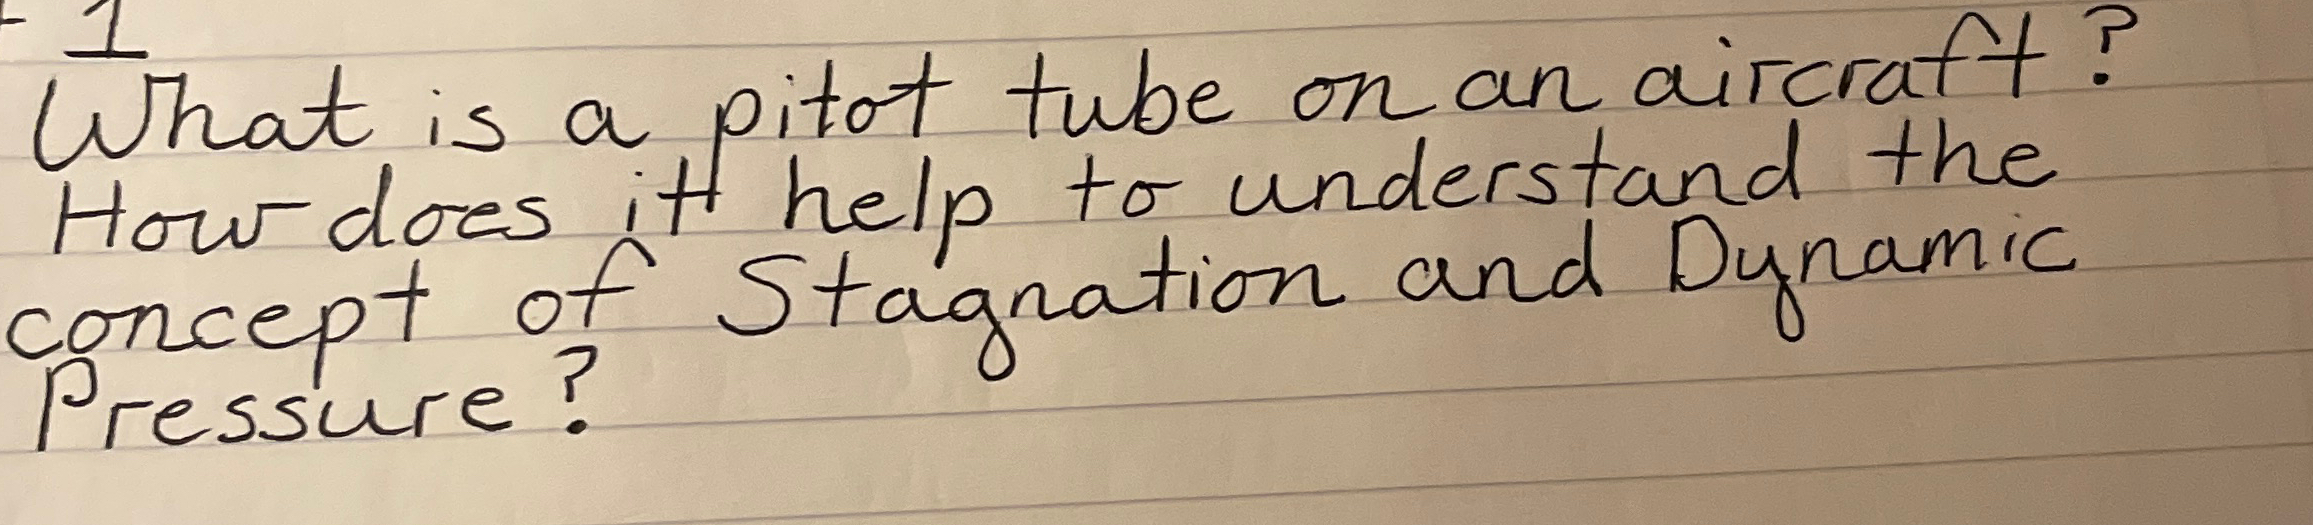 - 1
What is a pitot tube on an aircraft?
How does it help to understand the
concept of Stagnation and Dynamic
Pressure?